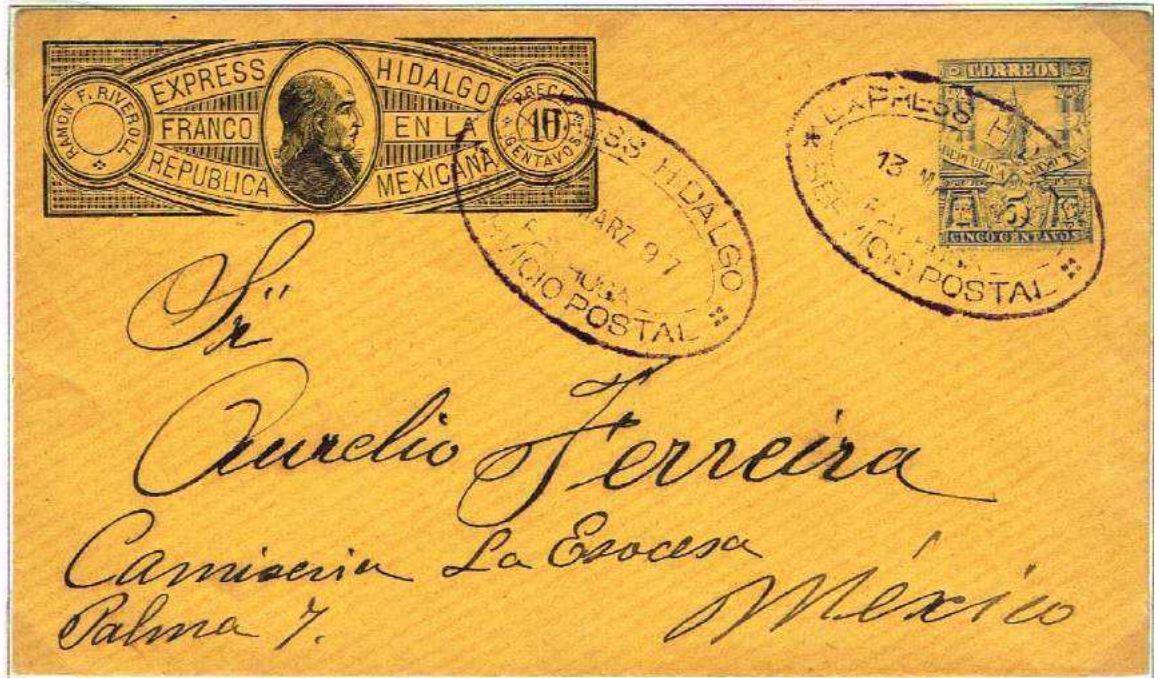 RAMON F. RIVEROLL
EXPRESS HIDALGO
FRANCO EN LA
REPUBLICA MEXICANA
PRECIO 10 CENTAVOS
EXPRESS HIDALGO
MARZ 97
SERVICIO POSTAL
CORREOS
5
CINCO CENTAVOS
EXPRESS H
13 M
SERVICIO POSTAL
Sr
Aurelio Ferreira
Camiseria La Escocesa
Palma 7.
México